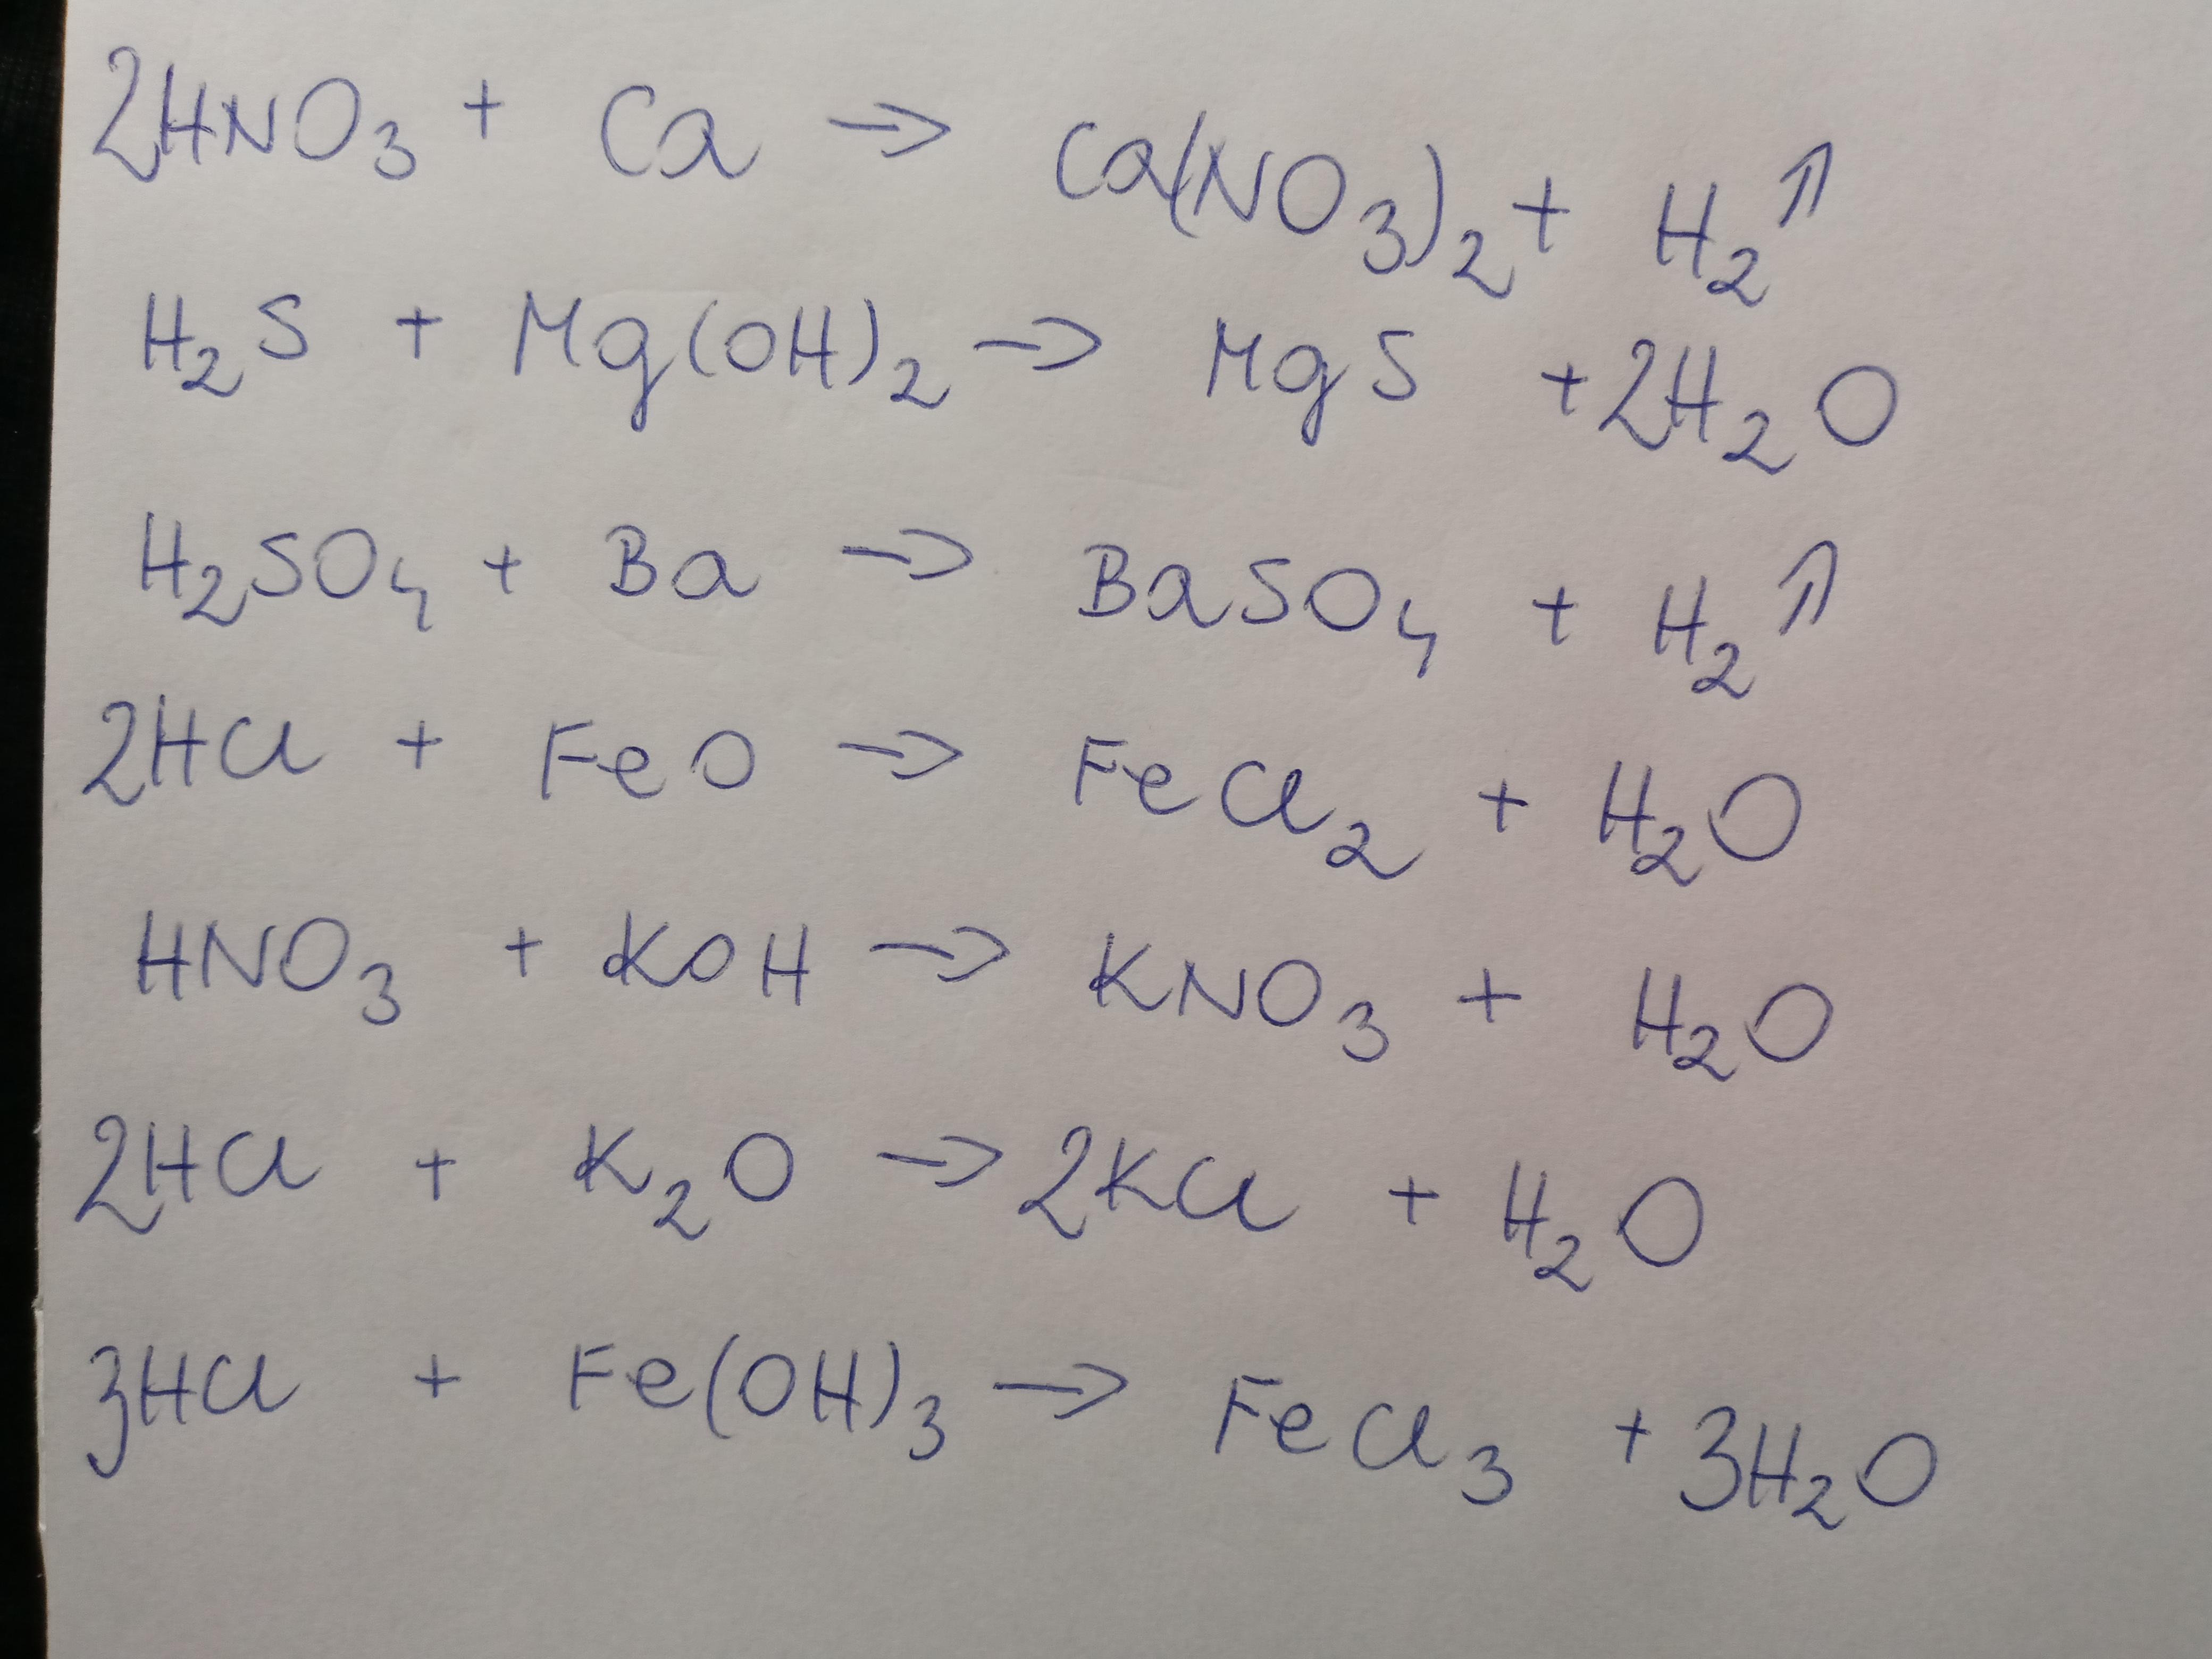 2HNO₃ + Ca → Ca(NO₃)₂ + H₂↑
H₂S + Mg(OH)₂ → MgS + 2H₂O
H₂SO₄ + Ba → BaSO₄ + H₂↑
2HCl + FeO → FeCl₂ + H₂O
HNO₃ + KOH → KNO₃ + H₂O
2HCl + K₂O → 2KCl + H₂O
3HCl + Fe(OH)₃ → FeCl₃ + 3H₂O